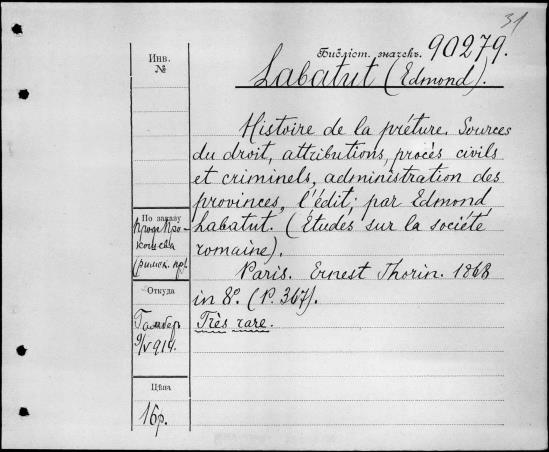 31
Инв.
№
Библіот. значекъ. 90279.
Labatut (Edmond).
Histoire de la préture. Sources
du droit, attributions, procès civils
et criminels, administration des
provinces, l'édit; par Edmond
Labatut. (Études sur la société
romaine).
Paris. Ernest Thorin. 1868
in 8º. (P. 367).
Très rare.
По заказу
(римск. пр).
Откуда
9/V 914.
Цѣна
16р.